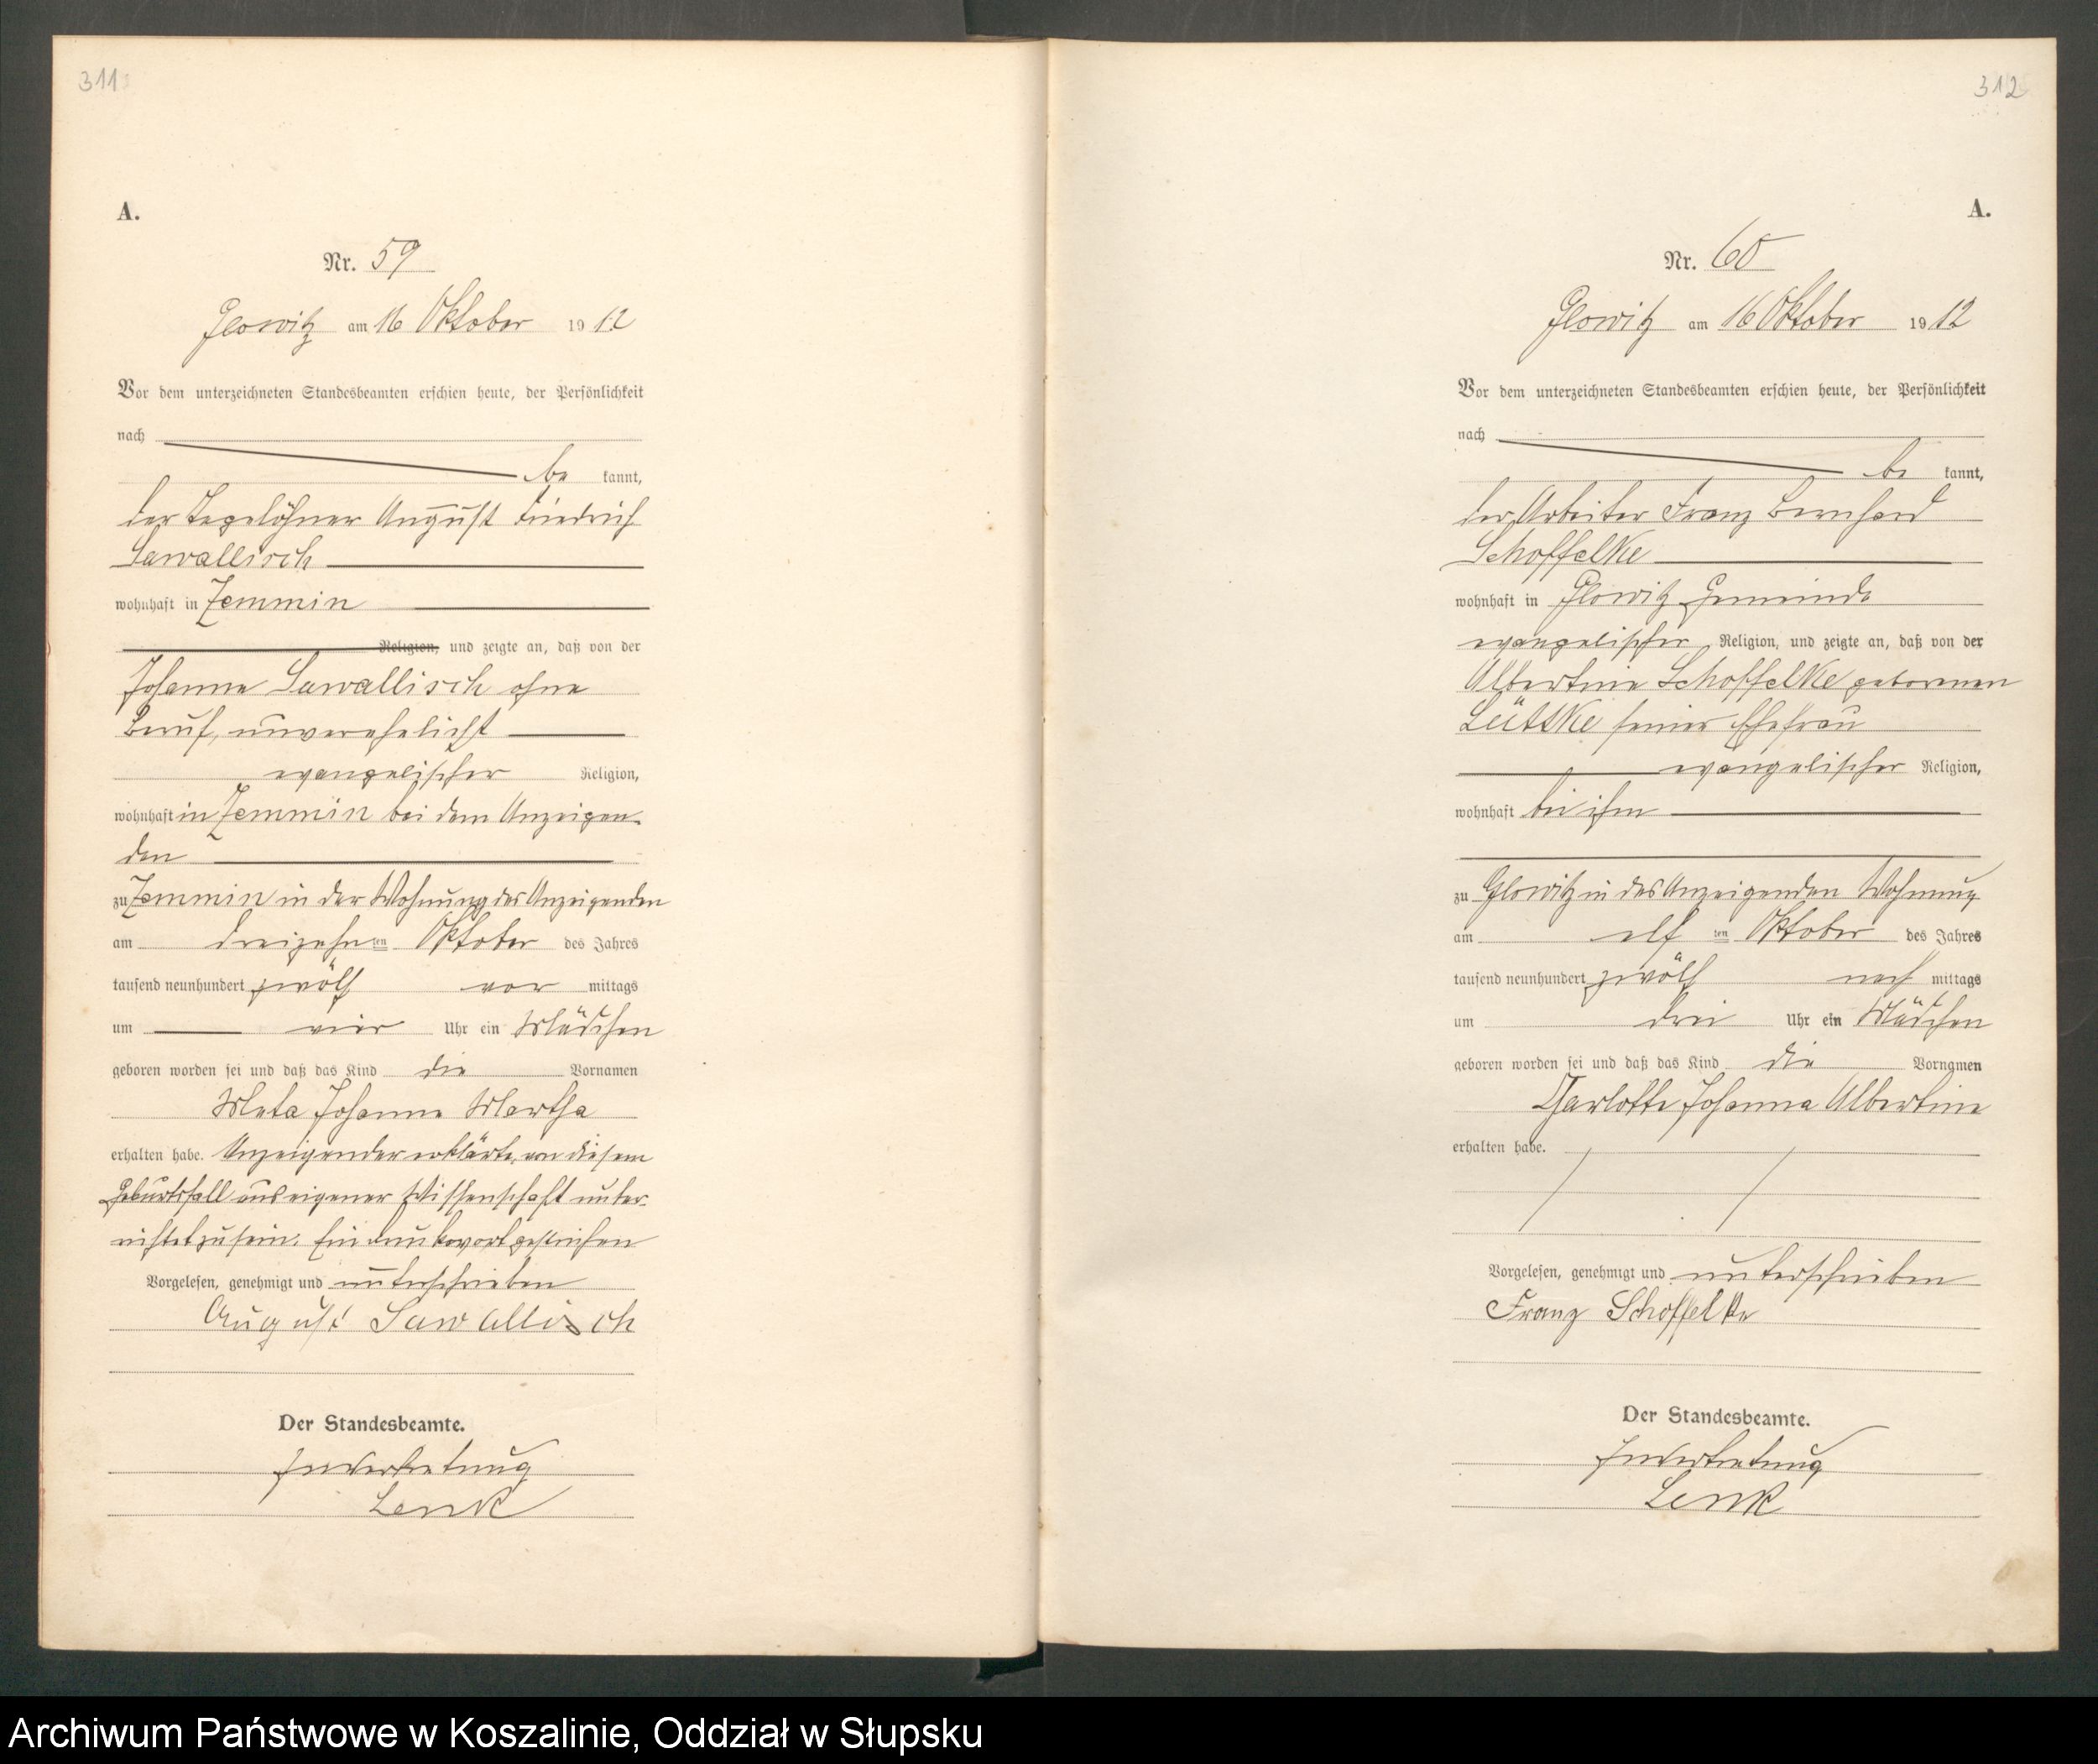 311
A.
Nr. 59
Glowitz am 16 Oktober 1912
Vor dem unterzeichneten Standesbeamten erschien heute, der Persönlichkeit
nach
be kannt,
der Tagelöhner August Friedrich
Sawallisch
wohnhaft in Zemmin
Religion, und zeigte an, daß von der
Johanne Sawallisch ohne
Beruf, unverehelicht
evangelischer Religion,
wohnhaft in Zemmin bei dem Anzeigen-
den
zu Zemmin in der Wohnung des Anzeigenden
am dreizehnten Oktober des Jahres
tausend neunhundert zwölf vor mittags
um vier Uhr ein Mädchen
geboren worden sei und daß das Kind die Vornamen
Meta Johanne Martha
erhalten habe. Anzeigender erklärte, von diesem
Geburtsfall aus eigener Wissenschaft unter-
richtet zu sein. Ein Druckwort gestrichen
Vorgelesen, genehmigt und unterschrieben
August Sawallisch
Der Standesbeamte.
In Vertretung
Lenk
312
A.
Nr. 60
Glowitz am 16 Oktober 1912
Vor dem unterzeichneten Standesbeamten erschien heute, der Persönlichkeit
nach
be kannt,
der Arbeiter Franz Bernhard
Schoffelke
wohnhaft in Glowitz Gemeinde
evangelischer Religion, und zeigte an, daß von der
Albertine Schoffelke geborenen
Lütske seiner Ehefrau
evangelischer Religion,
wohnhaft bei ihm
zu Glowitz in des Anzeigenden Wohnung
am elf ten Oktober des Jahres
tausend neunhundert zwölf nach mittags
um drei Uhr ein Mädchen
geboren worden sei und daß das Kind die Vornamen
Charlotte Johanna Albertine
erhalten habe.
Vorgelesen, genehmigt und unterschrieben
Franz Schoffelke
Der Standesbeamte.
In Vertretung
Lenk
Archiwum Państwowe w Koszalinie, Oddział w Słupsku